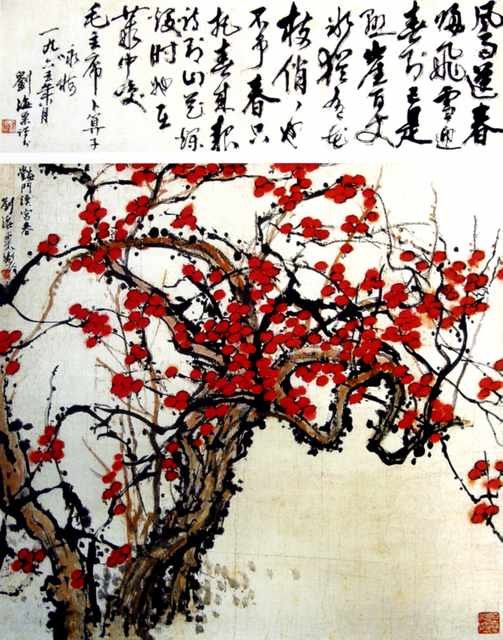 風雨送春
歸飛雪迎
春到已是
懸崖百丈
冰猶有花
枝俏〻也
不争春只
把春來報
待到山花爛
漫時她在
叢中笑
毛主席卜算子
詠梅
一九六五年月
劉海粟
劉海粟